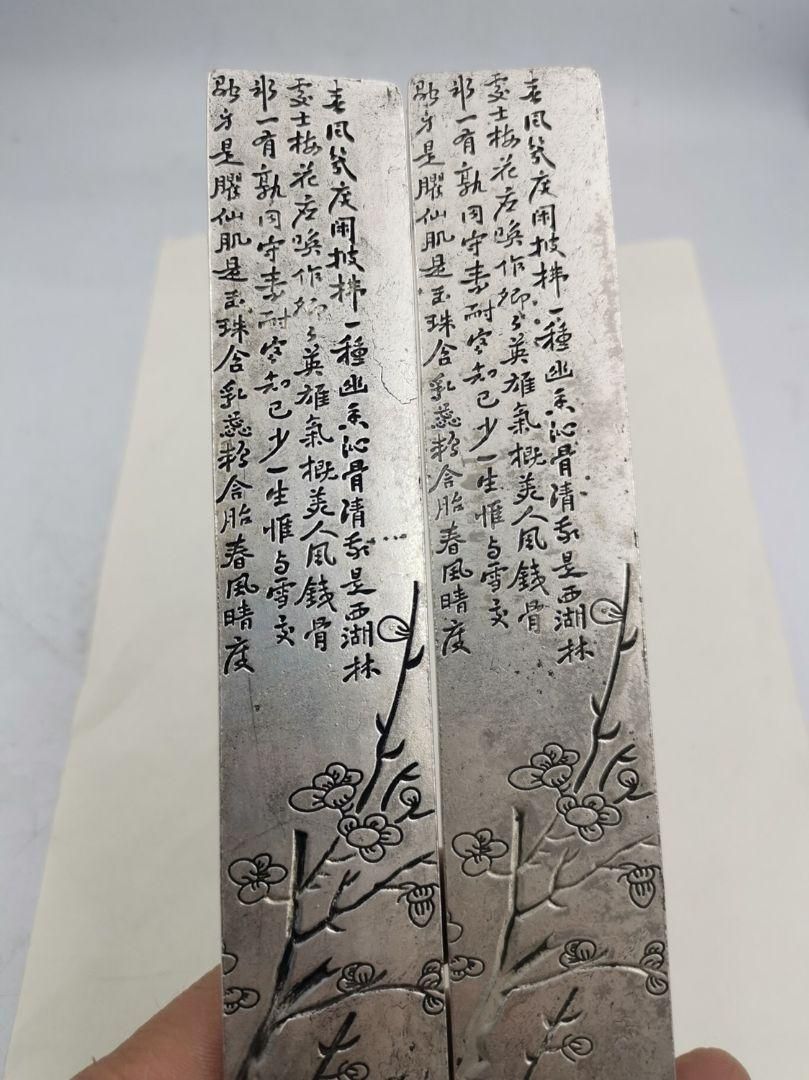 风幾度闲披拂一種幽香沁骨清我是西湖林
處士梅花应唤作卿卿英雄氣概美人风錢骨
一有孰同守素耐寒知己少一生惟与雪交
方是臞仙肌是玉珠含乳蕊粉含胎春風晴度
风幾度闲披拂一種幽香沁骨清我是西湖林
處士梅花应唤作卿卿英雄氣概美人风錢骨
一有孰同守素耐寒知己少一生惟与雪交
方是臞仙肌是玉珠含乳蕊粉含胎春風晴度